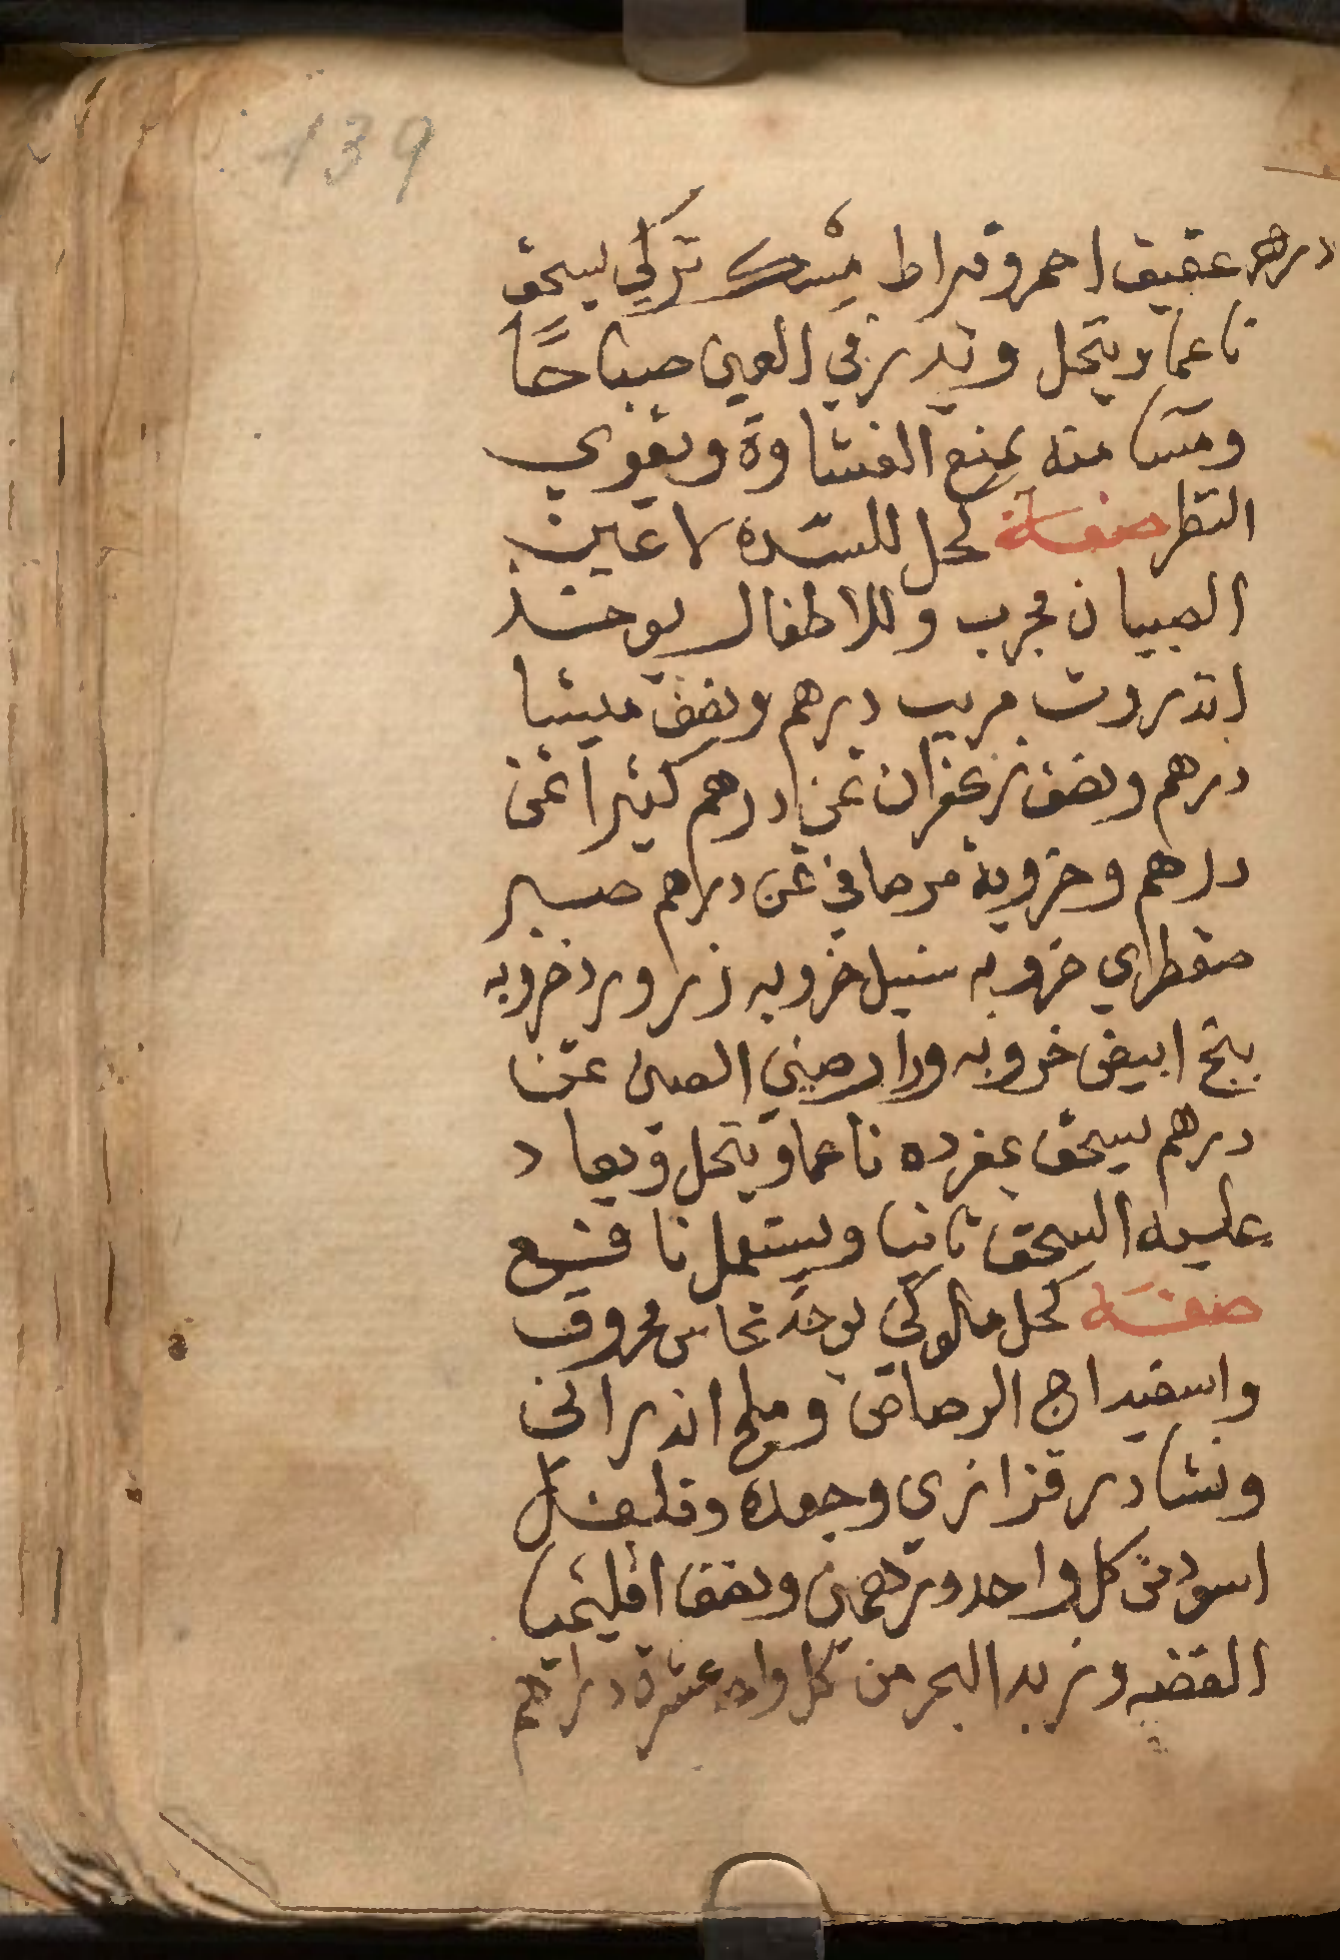 139
درهم عقيق احمر وقيراط مسك تركي يسحق
ناعما ويتحل ويذر في العين صباحًا
ومسا منه يمنع الغشاوة ويقوي
النظر صفة كحل للسده لاعين
الصبيان مجرب وللاطفال يوخذ
انذروت مربب درهم ونصف ميشا
درهم ونصف زعفران ثمن درهم كثيرا ثمن
درهم وخروبة مر صافي ثمن درهم صبر
صقطري خروبه سنبل خروبه زر ورد خروبه
بنج ابيض خروبه ودارصيني الصين ثمن
درهم يسحق بمفرده ناعما ويتحل ويعاد
عليه السحق ثانيا ويستعمل نافع
صفة كحل مالوكي يوخذ نحاس محروق
واسفيداج الرصاص وملح اندراني
ونشادر قزازي وجعده وفلفل
اسود من كل واحد درهمين ونصف اقليميا
الفضه وزبد البحر من كل واحد عشرة دراهم